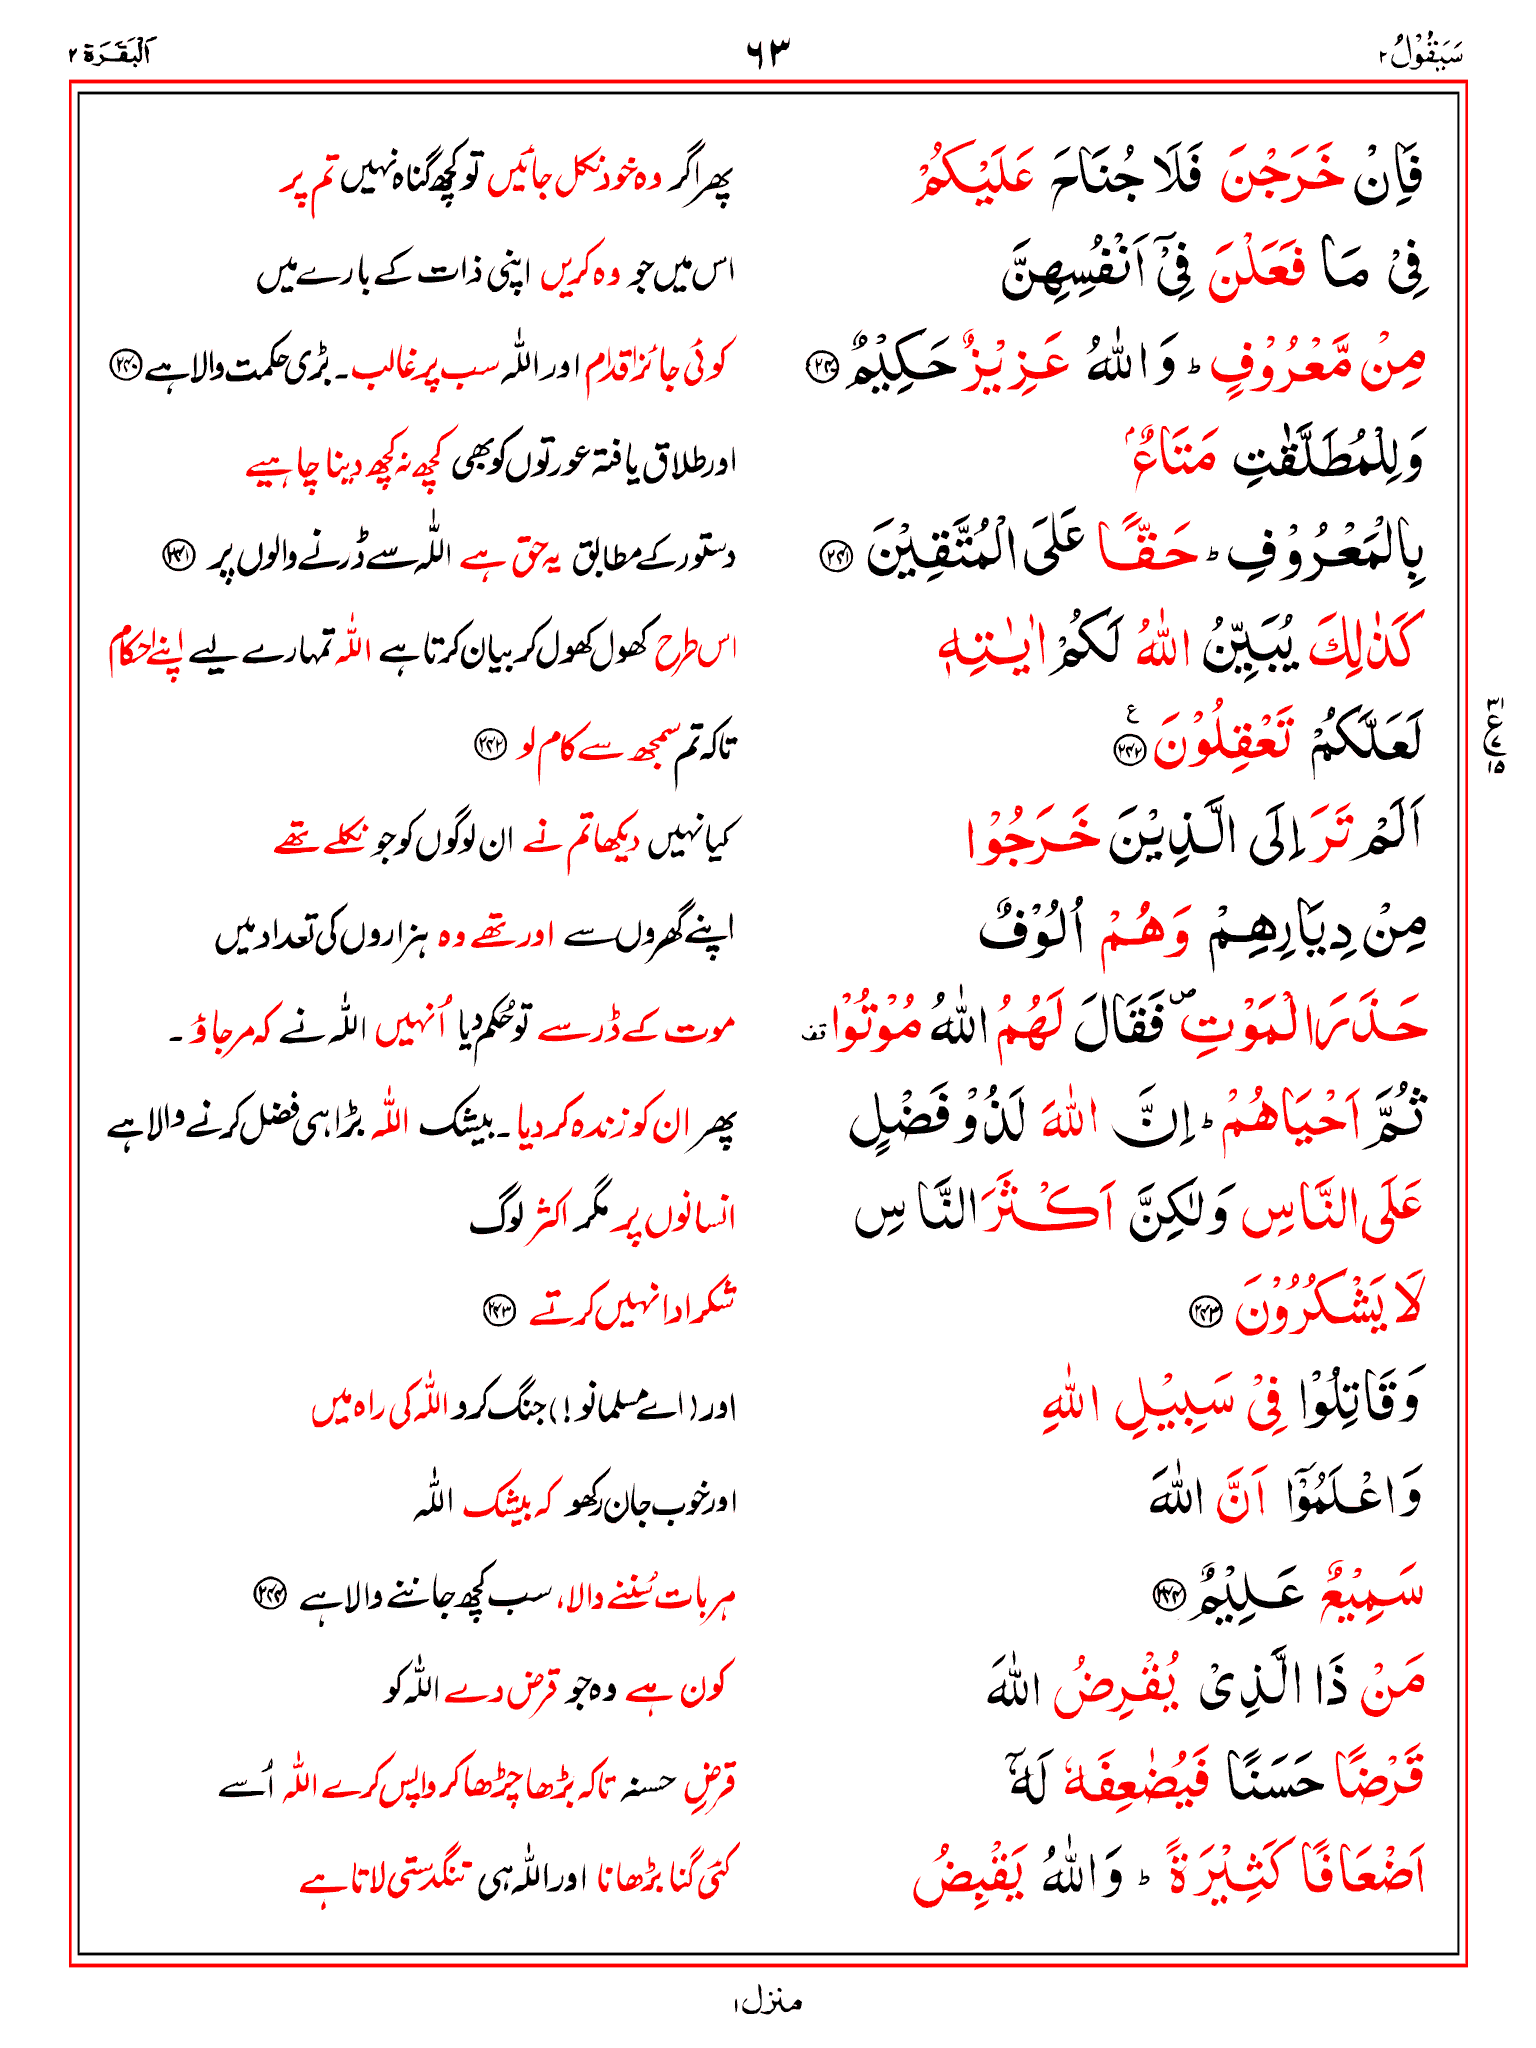 سَيَقُوْلُ ٢ ٦٣ اَلْبَقَرَة ٢
فَاِنْ خَرَجْنَ فَلَا جُنَاحَ عَلَيْكُمْ پھر اگر وہ خود نکل جائیں تو کچھ گناہ نہیں تم پر
فِيْ مَا فَعَلْنَ فِيْٓ اَنْفُسِهِنَّ اس میں جو وہ کریں اپنی ذات کے بارے میں
مِنْ مَّعْرُوْفٍ ؕ وَاللّٰهُ عَزِيْزٌ حَكِيْمٌ ۝۲۴۰ کوئی جائز اقدام اور اللّٰہ سب پر غالب۔ بڑی حکمت والا ہے ۝۲۴۰
وَلِلْمُطَلَّقٰتِ مَتَاعٌۢ اور طلاق یافتہ عورتوں کو بھی کچھ نہ کچھ دینا چاہیے
بِالْمَعْرُوْفِ ؕ حَقًّا عَلَى الْمُتَّقِيْنَ ۝۲۴۱ دستور کے مطابق یہ حق ہے اللّٰہ سے ڈرنے والوں پر ۝۲۴۱
كَذٰلِكَ يُبَيِّنُ اللّٰهُ لَكُمْ اٰيٰتِهٖ اس طرح کھول کھول کر بیان کرتا ہے اللّٰہ تمہارے لیے اپنے احکام
لَعَلَّكُمْ تَعْقِلُوْنَ ۝۲۴۲ ع تاکہ تم سمجھ سے کام لو ۝۲۴۲
٣١ ع ٧ ١٥
اَلَمْ تَرَ اِلَى الَّذِيْنَ خَرَجُوْا کیا نہیں دیکھا تم نے ان لوگوں کو جو نکلے تھے
مِنْ دِيَارِهِمْ وَهُمْ اُلُوْفٌ اپنے گھروں سے اور تھے وہ ہزاروں کی تعداد میں
حَذَرَ الْمَوْتِ ص فَقَالَ لَهُمُ اللّٰهُ مُوْتُوْا قف موت کے ڈر سے تو حُکم دیا اُنہیں اللّٰہ نے کہ مر جاؤ۔
ثُمَّ اَحْيَاهُمْ ؕ اِنَّ اللّٰهَ لَذُوْ فَضْلٍ پھر ان کو زندہ کر دیا۔ بیشک اللّٰہ بڑا ہی فضل کرنے والا ہے
عَلَى النَّاسِ وَلٰكِنَّ اَكْثَرَ النَّاسِ انسانوں پر مگر اکثر لوگ
لَا يَشْكُرُوْنَ ۝۲۴۳ شکر ادا نہیں کرتے ۝۲۴۳
وَقَاتِلُوْا فِيْ سَبِيْلِ اللّٰهِ اور (اے مسلمانو!) جنگ کرو اللّٰہ کی راہ میں
وَاعْلَمُوْٓا اَنَّ اللّٰهَ اور خوب جان رکھو کہ بیشک اللّٰہ
سَمِيْعٌ عَلِيْمٌ ۝۲۴۴ ہر بات سُننے والا، سب کچھ جاننے والا ہے ۝۲۴۴
مَنْ ذَا الَّذِيْ يُقْرِضُ اللّٰهَ کون ہے وہ جو قرض دے اللّٰہ کو
قَرْضًا حَسَنًا فَيُضٰعِفَهٗ لَهٗٓ قرضِ حسنہ تاکہ بڑھا چڑھا کر واپس کرے اللّٰہ اُسے
اَضْعَافًا كَثِيْرَةً ؕ وَاللّٰهُ يَقْبِضُ کئی گنا بڑھانا اور اللّٰہ ہی تنگدستی لاتا ہے
منزل ١